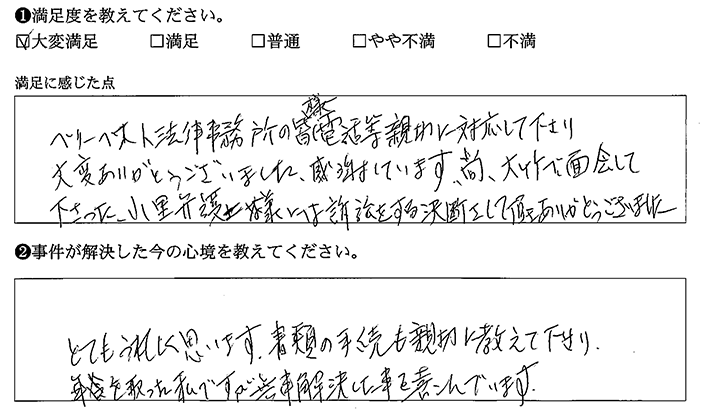 ❶満足度を教えてください。
☑大変満足 □満足 □普通 □やや不満 □不満
満足に感じた点
ベリーベスト法律事務所の皆様電話等親切に対応して下さり
大変ありがとうございました、感謝しています、尚、大竹で面会して
下さった、小里弁護士様には訴訟をする決断をして頂きありがとうございました
❷事件が解決した今の心境を教えてください。
とてもうれしく思います、書類の手続も親切に教えて下さり、
年令を取った私ですが無事解決した事を喜こんでいます、